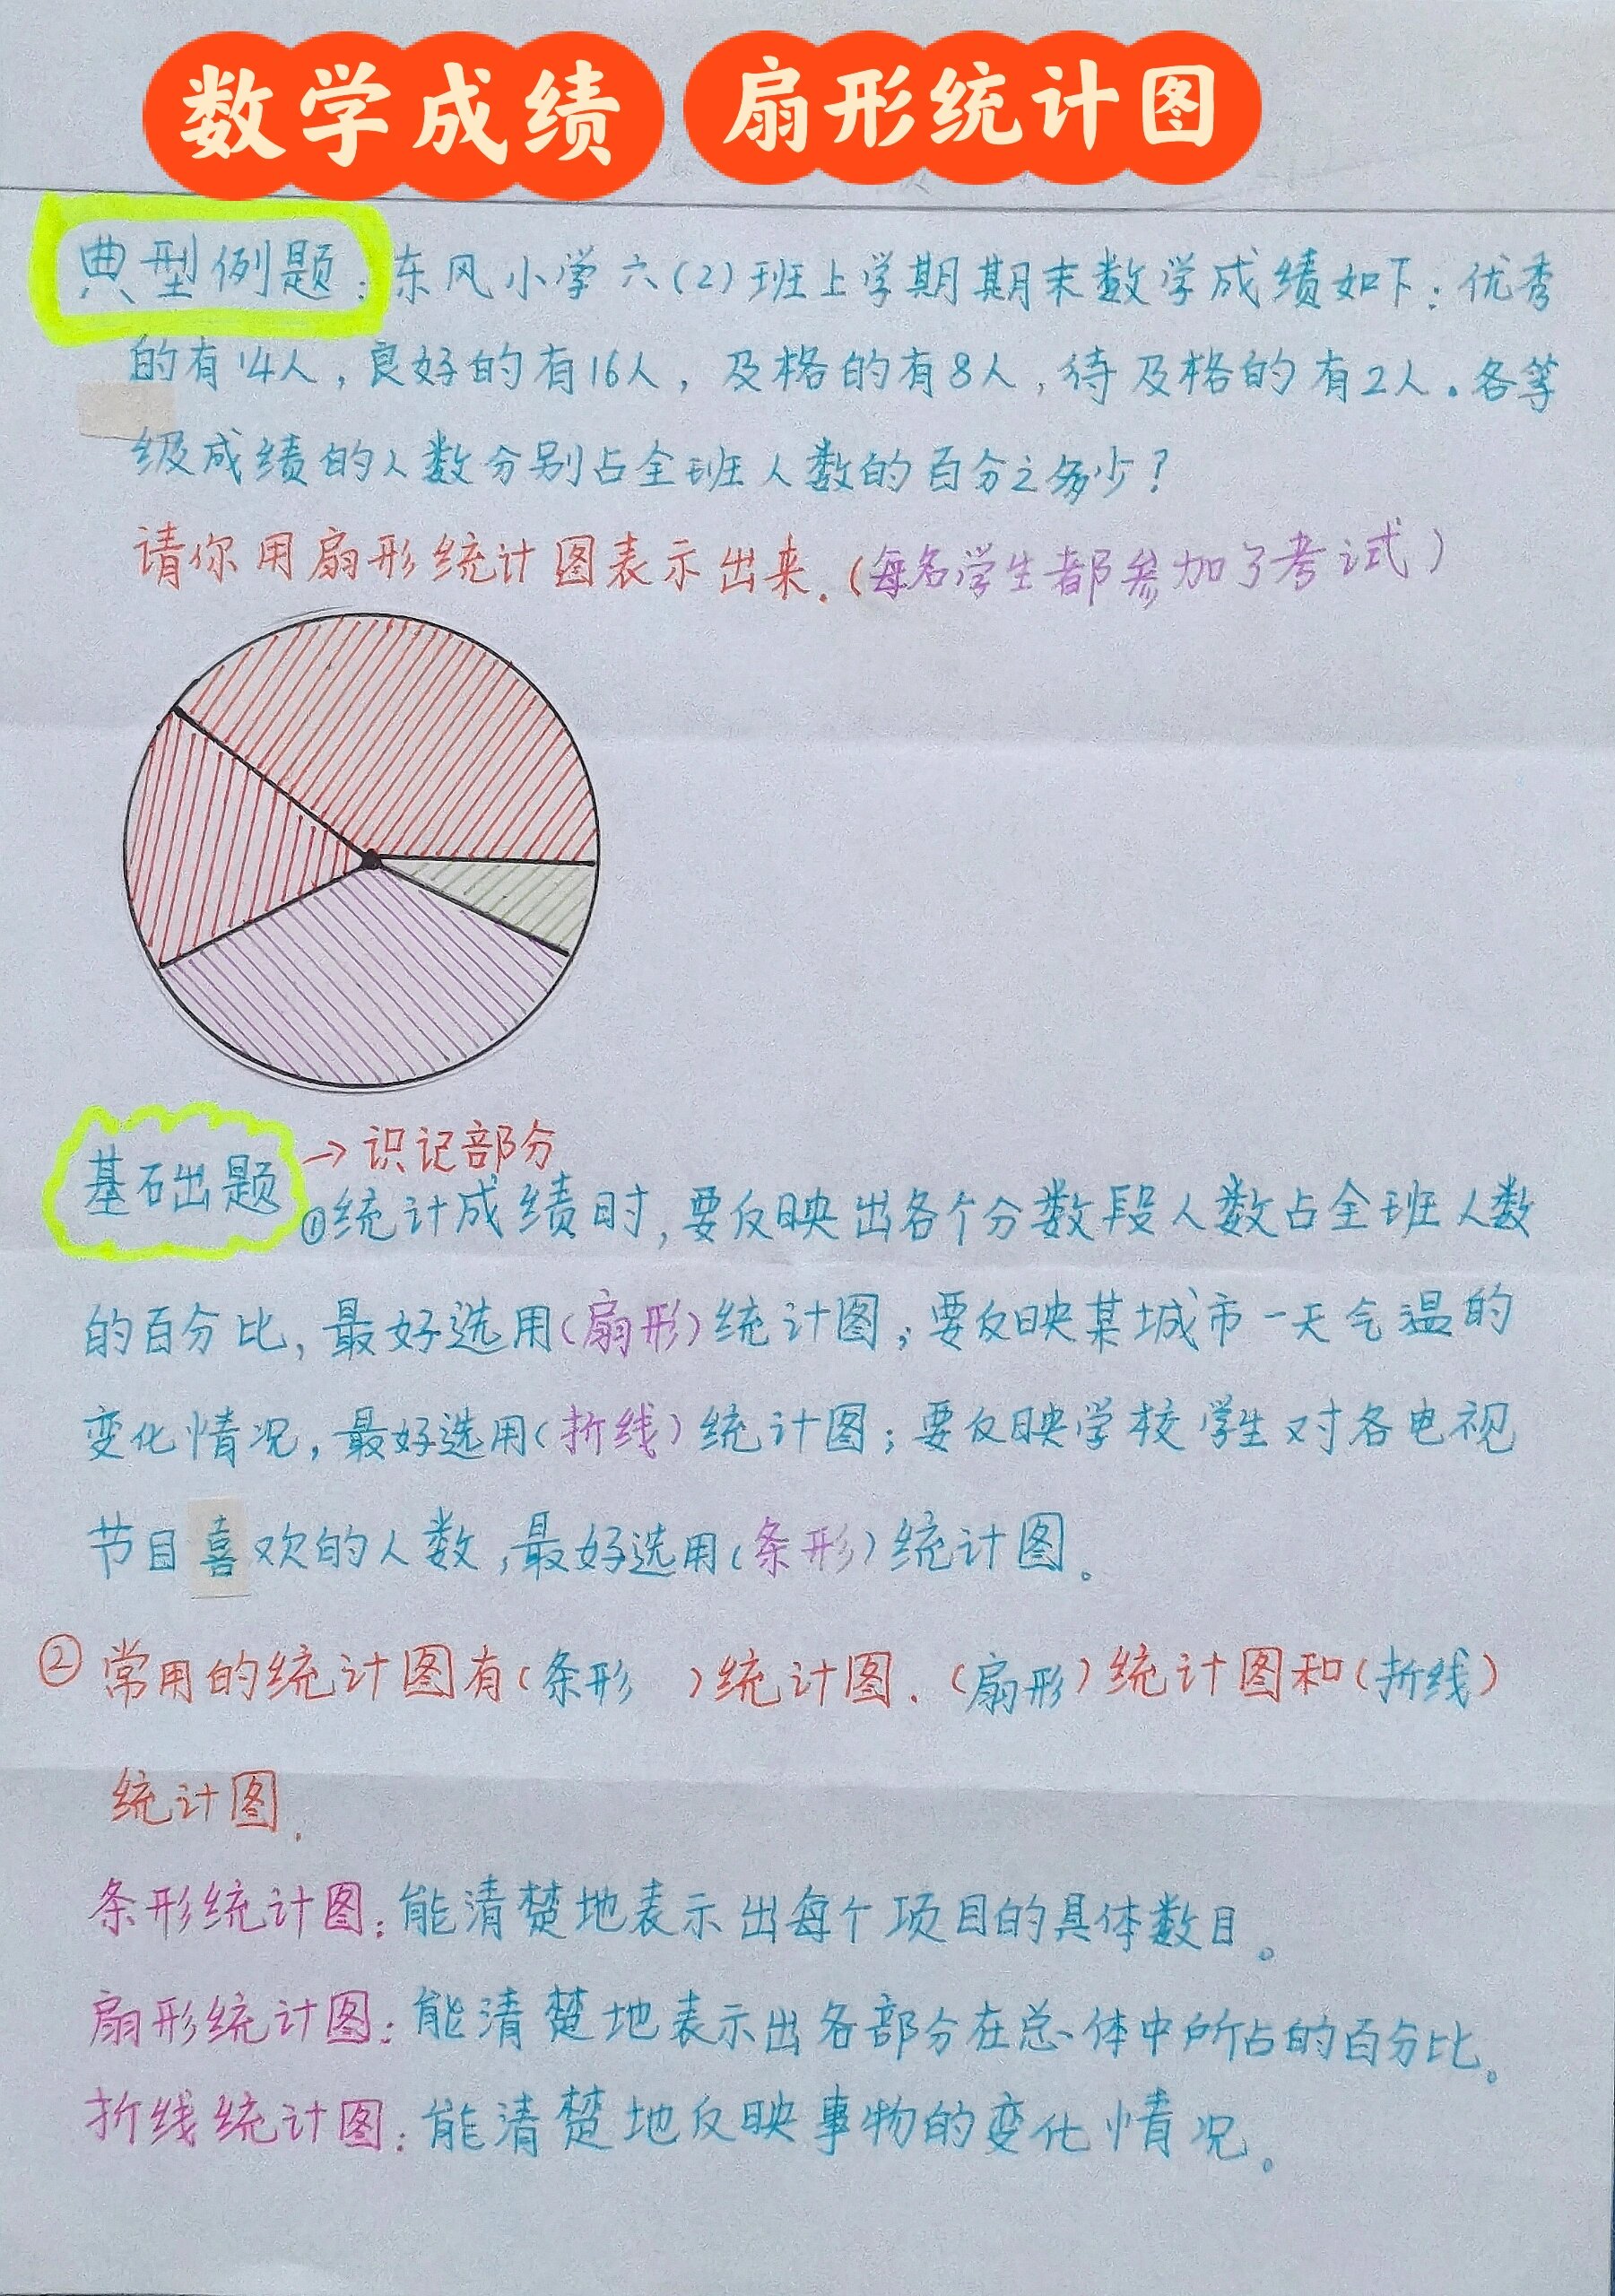 数学成绩 扇形统计图
典型例题：东风小学六(2)班上学期期末数学成绩如下：优秀
的有14人，良好的有16人，及格的有8人，待及格的有2人。各等
级成绩的人数分别占全班人数的百分之多少？
请你用扇形统计图表示出来.（每名学生都参加了考试）
基础题 → 识记部分
①统计成绩时，要反映出各个分数段人数占全班人数
的百分比，最好选用（扇形）统计图；要反映某城市一天气温的
变化情况，最好选用（折线）统计图；要反映学校学生对各电视
节目喜欢的人数，最好选用（条形）统计图。
②常用的统计图有（条形 ）统计图.（扇形）统计图和（折线）
统计图.
条形统计图：能清楚地表示出每个项目的具体数目。
扇形统计图：能清楚地表示出各部分在总体中所占的百分比。
折线统计图：能清楚地反映事物的变化情况。